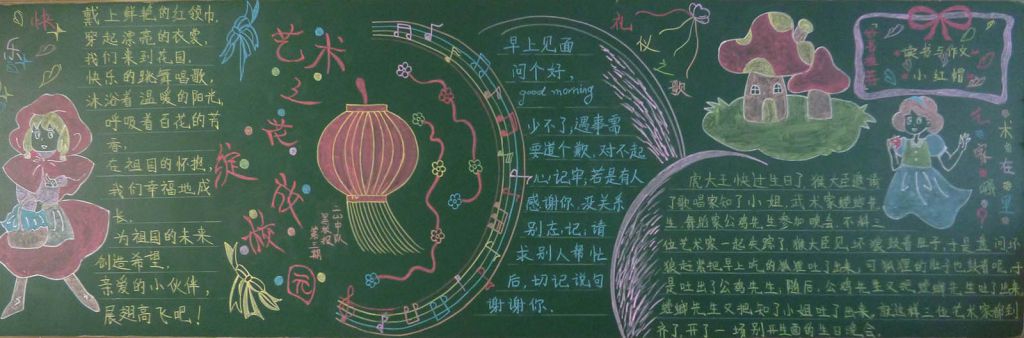 快乐
戴上鲜艳的红领巾.
穿起漂亮的衣裳.
我们来到花园.
快乐的跳舞唱歌,
沐浴着温暖的阳光,
呼吸着百花的芳
香,
在祖国的怀抱,
我们幸福地成
长.
为祖国的未来
创造希望,
亲爱的小伙伴,
展翅高飞吧!
艺术之花
绽放校园
二(3)中队
黑板报
第三期
早上见面
问个好,
good morning
少不了,遇事需
要道个歉,对不起
心记牢,若是有人
感谢你,没关系
别忘记,请
求别人帮忙
后,切记说句
谢谢你.
礼仪之歌
小红帽
艺术家在哪里?
虎大王快过生日了,猴大臣邀请
了歌唱家知了小姐,武术家螳螂先
生,舞蹈家公鸡先生参加晚会,不料三
位艺术家一起失踪了,猴大臣见坏狼鼓着肚子,于是責问坏
狼赶紧把早上吃的狐狸吐了出来,可狐狸的肚子也鼓着呢,于
是吐出了公鸡先生,随后,公鸡先生又把螳螂先生吐了出来
螳螂先生又把知了小姐吐了出来,就这样三位艺术家都到
齐了,开了一场别开生面的生日晚会.